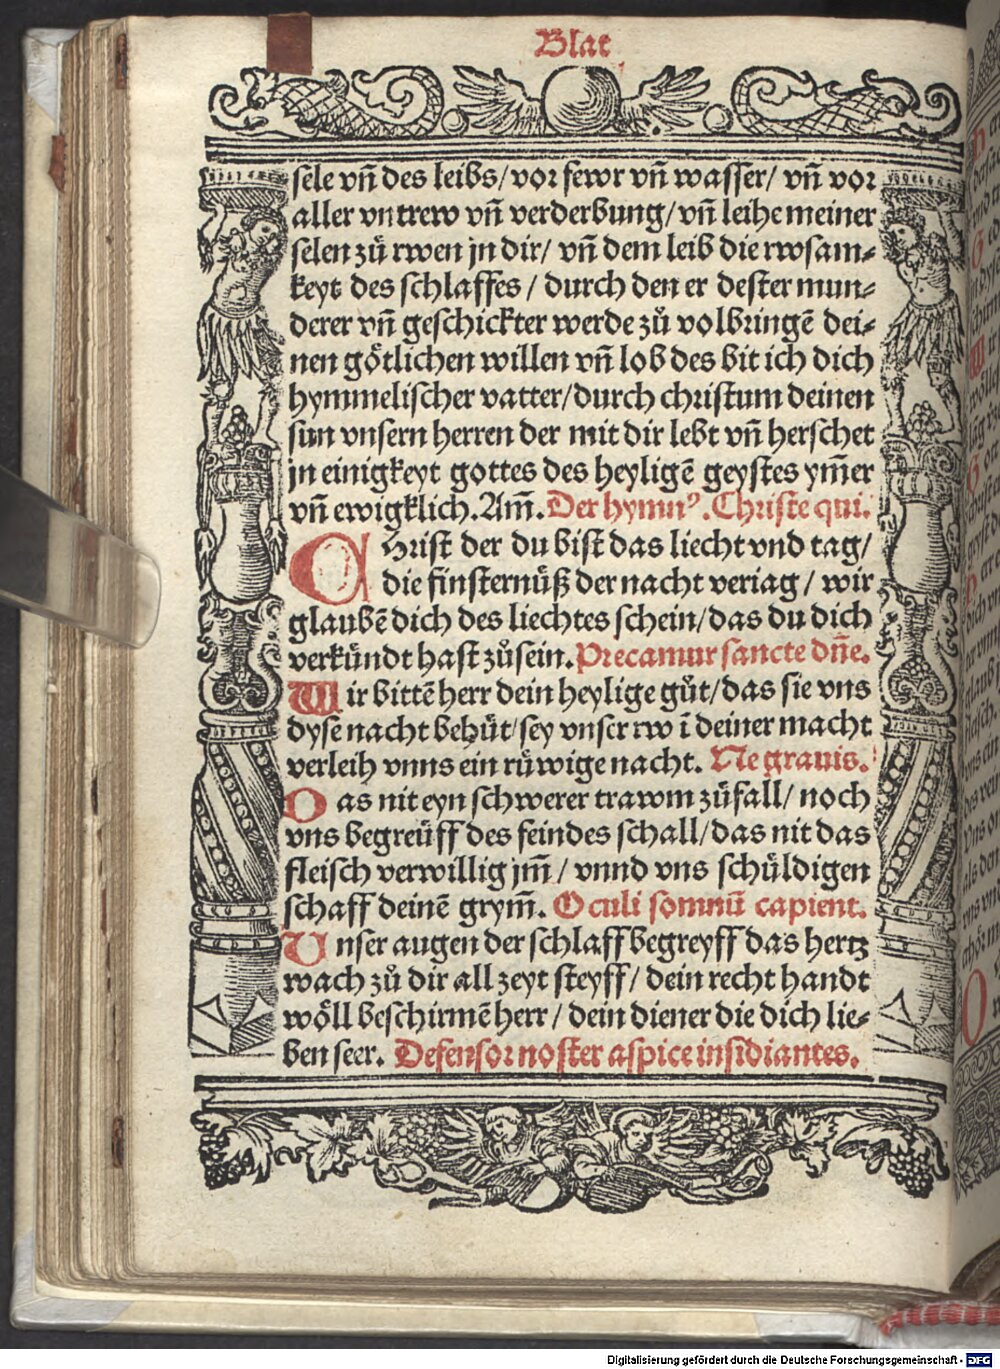 Blat
sele vn̄ des leibs/vor fewr vn̄ wasser/ vn̄ vor
aller vntrew vn̄ verderbung/vn̄ leihe meiner
selen zů rwen jn dir/ vn̄ dem leib die rwsam-
keyt des schlaffes/ durch den er dester mun-
derer vn̄ geschickter werde zů volbringē dei-
nen götlichen willen vn̄ lob des bit ich dich
hymmelischer vatter/durch christum deinen
sun vnsern herren der mit dir lebt vn̄ herschet
jn einigkeyt gottes des heyligē geystes ym̄er
vn̄ ewigklich. Am̄. Der hymnꝰ. Christe qui.
Christ der du bist das liecht vnd tag/
die finsternüß der nacht veriag/ wir
glaubē dich des liechtes schein/das du dich
verkündt hast zůsein. Precamur sancte dn̄e.
Wir bittē herr dein heylige gůt/das sie vns
dyse nacht behüt/sey vnser rw ī deiner macht
verleih vnns ein rüwige nacht. Ne grauis.
Das nit eyn schwerer trawm zůfall/ noch
vns begreüff des feindes schall/das nit das
fleisch verwillig jm̄/ vnnd vns schüldigen
schaff deinē grym̄. Oculi somnū capient.
Unser augen der schlaff begreyff das hertz
wach zů dir all zeyt steyff/ dein recht handt
wöll beschirmē herr/ dein diener die dich lie-
ben seer. Defensor noster aspice insidiantes.
Digitalisierung gefördert durch die Deutsche Forschungsgemeinschaft - DFG